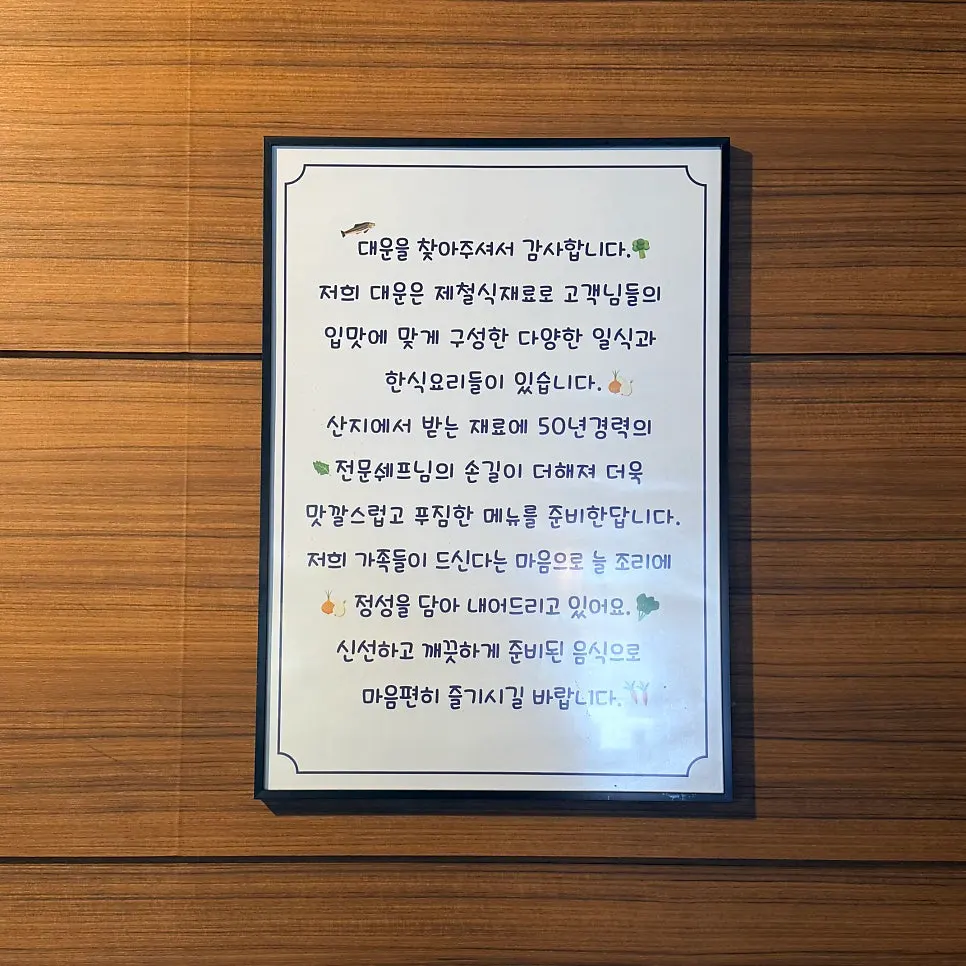 대운을 찾아주셔서 감사합니다.
저희 대운은 제철식재료로 고객님들의
입맛에 맞게 구성한 다양한 일식과
한식요리들이 있습니다.
산지에서 받는 재료에 50년경력의
전문쉐프님의 손길이 더해져 더욱
맛깔스럽고 푸짐한 메뉴를 준비한답니다.
저희 가족들이 드신다는 마음으로 늘 조리에
정성을 담아 내어드리고 있어요.
신선하고 깨끗하게 준비된 음식으로
마음편히 즐기시길 바랍니다.